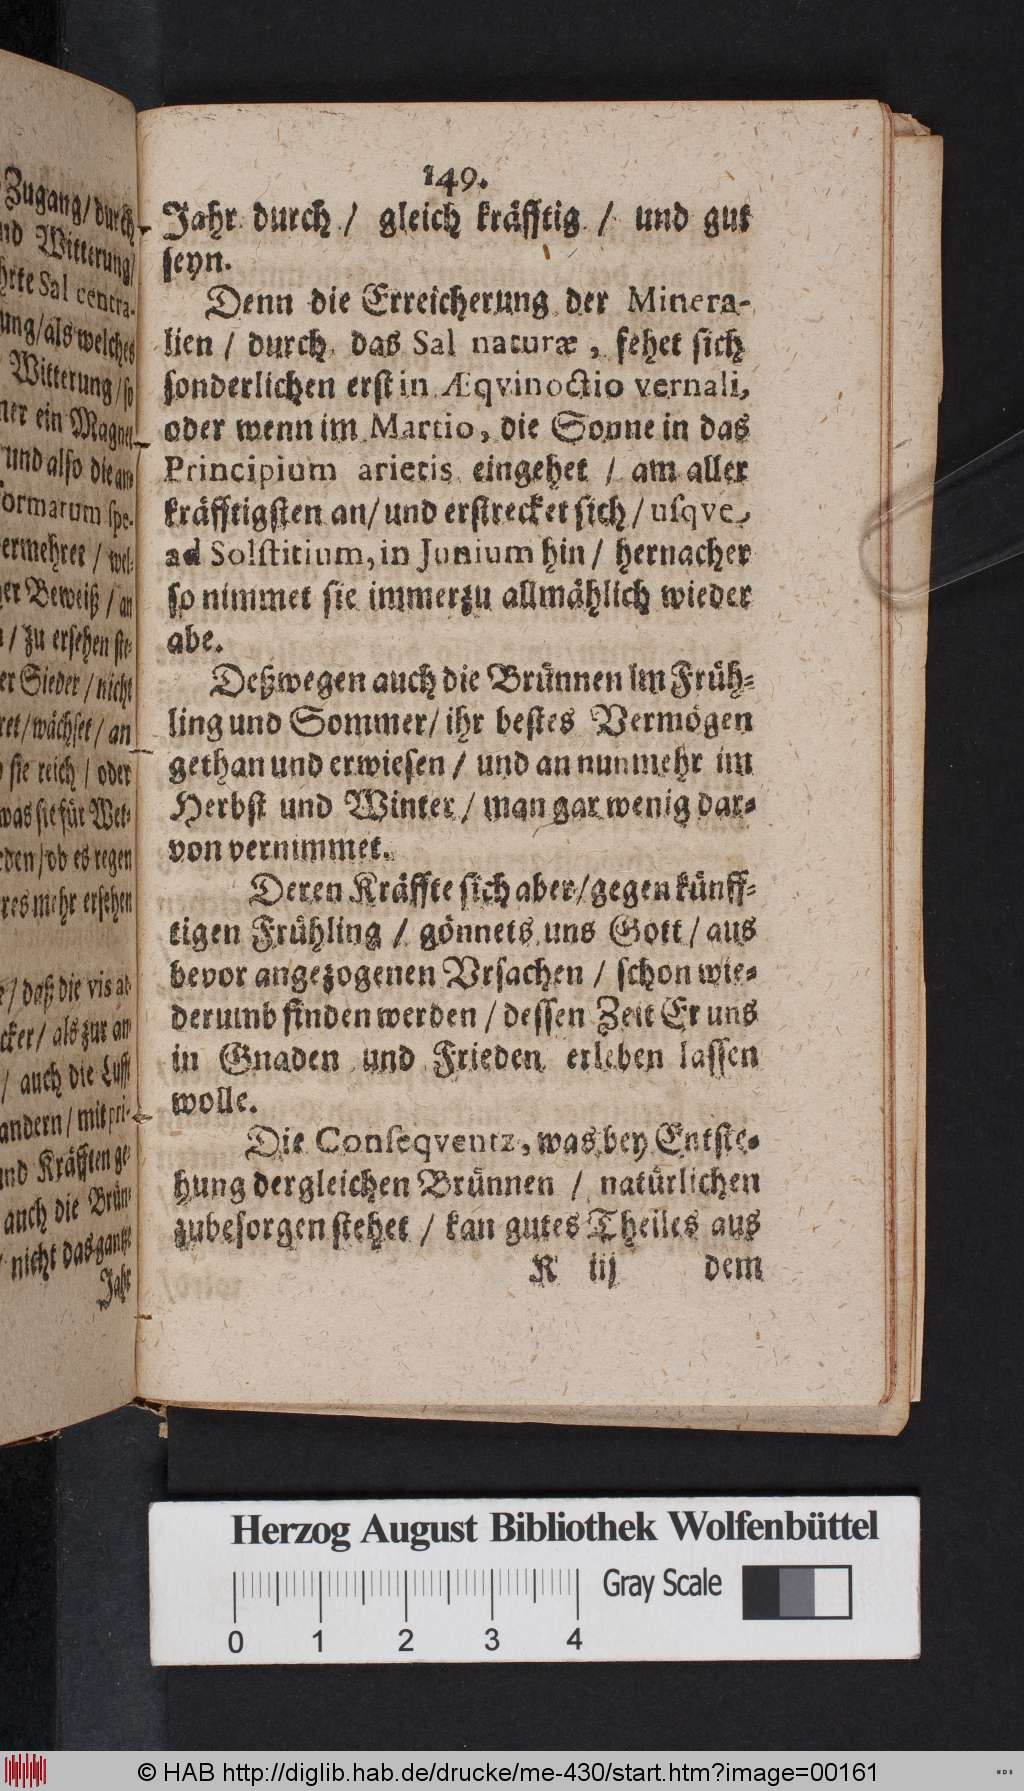 Zugang / durch
Witterung /
Sal centra-
ung / als welches
Witterung / so
ein Magnet
und also die an-
formarum spe-
vermehret / wel-
Beweiß / an
/ zu ersehen ste-
Sieder / nicht
wächset / an
sie reich / oder
was sie für Wet-
ob es regen
mehr ersehen
/ daß die vis at-
als zur an-
/ auch die Lufft
andern / mit pri-
und Kräfften ge-
auch die Brün-
nicht das gantze
Jahr
149.
Jahr durch / gleich kräfftig / und gut
seyn.
Denn die Erreicherung der Minera-
lien / durch das Sal naturæ, fehet sich
sonderlichen erst in Æqvinoctio vernali,
oder wenn im Martio, die Sonne in das
Principium arietis eingehet / am aller
kräfftigsten an / und erstrecket sich / usqve
ad Solstitium, in Junium hin / hernacher
so nimmet sie immerzu allmählich wieder
abe.
Deßwegen auch die Brünnen im Früh-
ling und Sommer / ihr bestes Vermögen
gethan und erwiesen / und an nunmehr im
Herbst und Winter / man gar wenig dar-
von vernimmet.
Deren Kräffte sich aber / gegen künff-
tigen Frühling / gönnets uns Gott / aus
bevor angezogenen Vrsachen / schon wie-
derumb finden werden / dessen Zeit Er uns
in Gnaden und Frieden erleben lassen
wolle.
Die Conseqventz, was bey Entste-
hung dergleichen Brünnen / natürlichen
zubesorgen stehet / kan gutes Theiles aus
K iij dem
Herzog August Bibliothek Wolfenbüttel
Gray Scale
0 1 2 3 4
© HAB http://diglib.hab.de/drucke/me-430/start.htm?image=00161